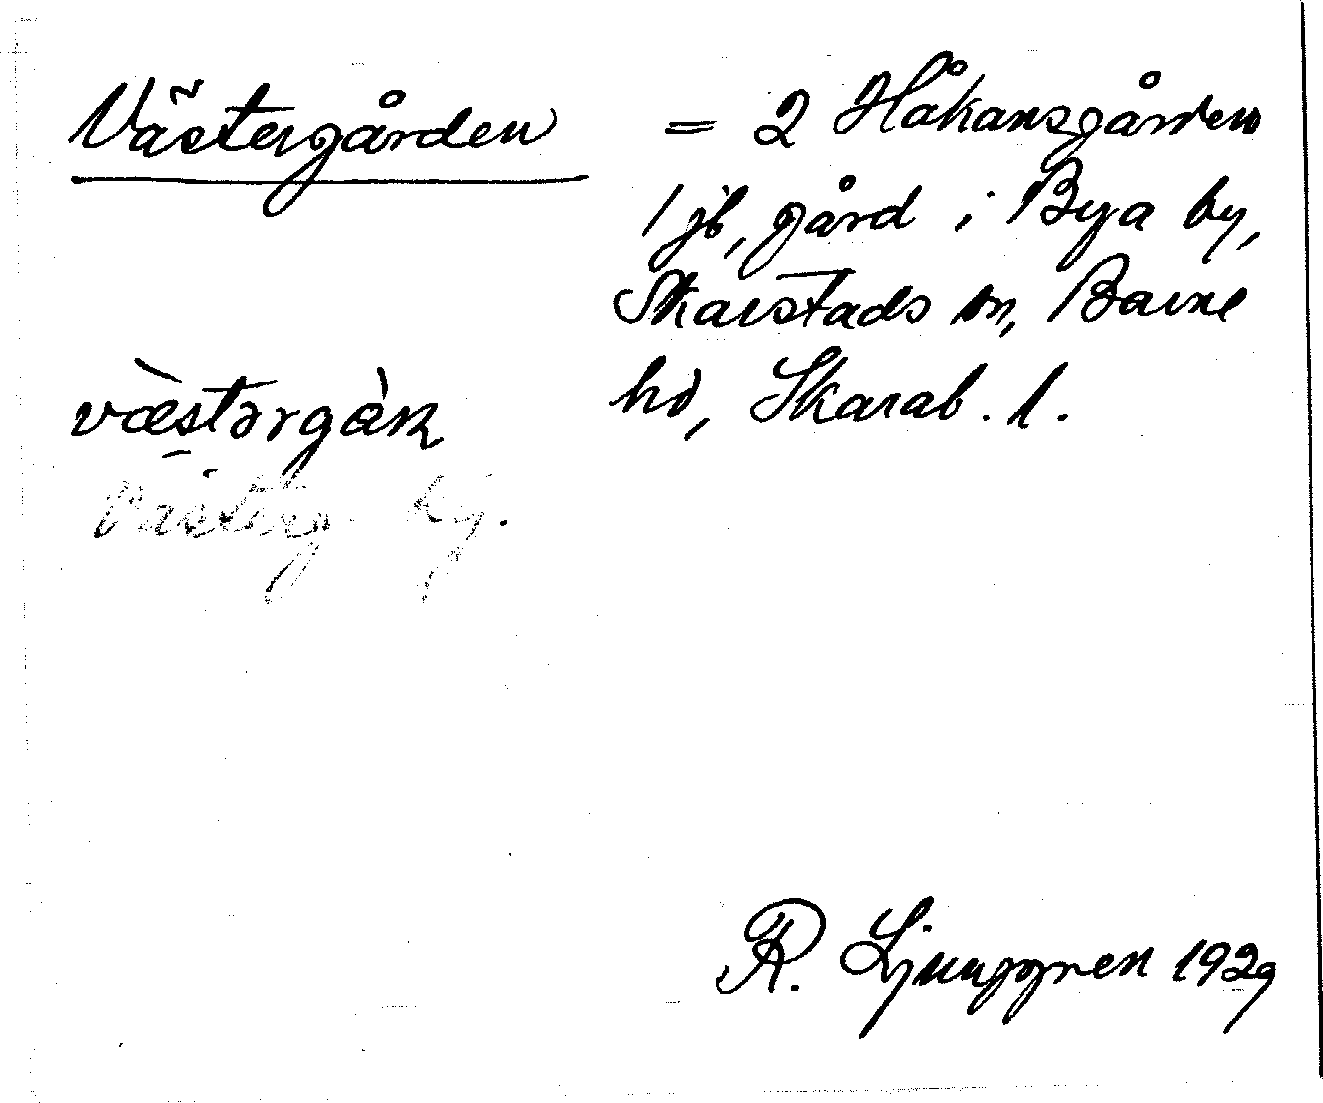 Västergården = 2 Håkansgården
1 jb, gård i Bya by,
Skarstads sn, Barne
hd, Skarab. l.
væstərgàɳ
Västerg. by.
R. Ljunggren 1929